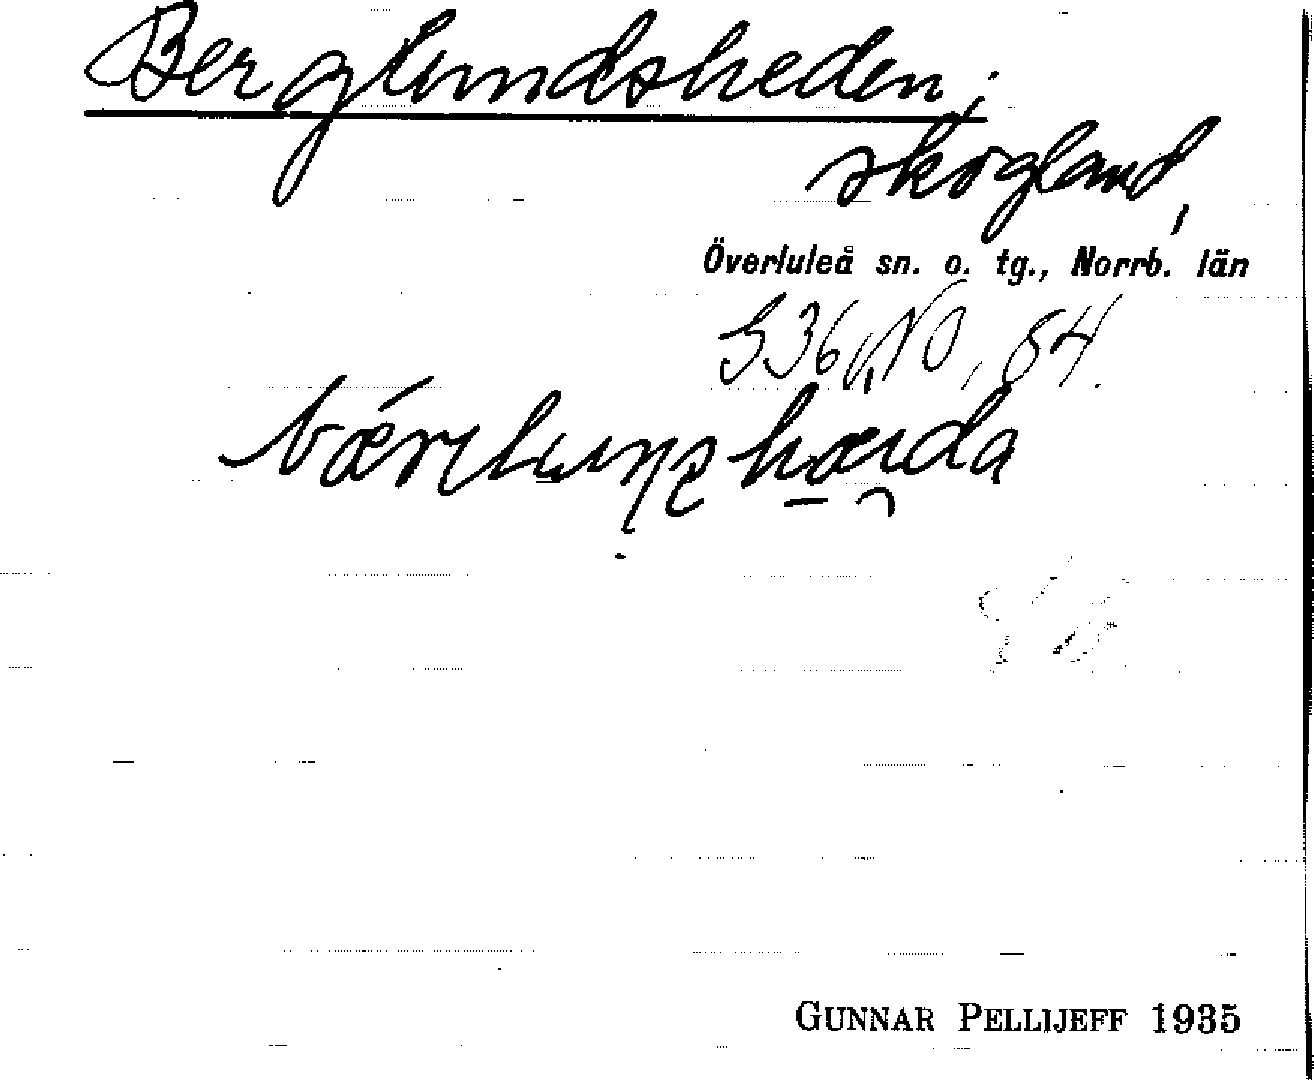 Berglundsheden;
skogland,
Överluleå sn. o. tg., Norrb. län
S36, NO, 84.
GUNNAR PELLIJEFF 1935